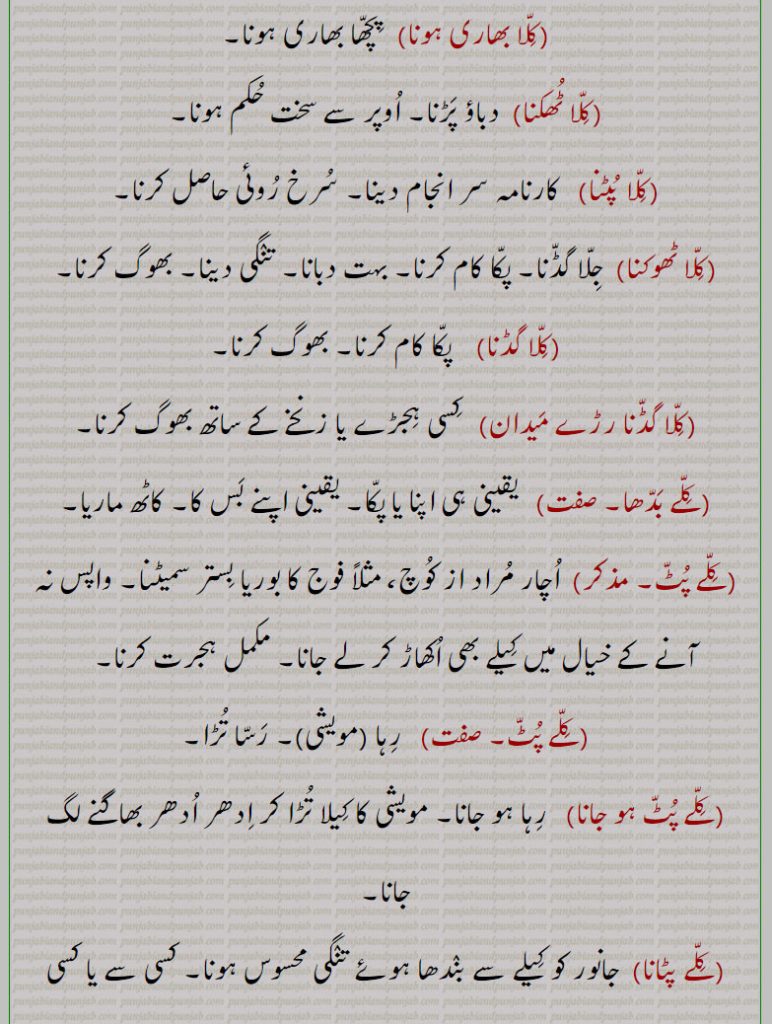 (کِلّا بھاری ہونا) پِچھّا بھاری ہونا۔
(کِلّا ٹُھکنا) دباؤ پَڑنا۔ اُوپر سے سخت حُکم ہونا۔
(کِلّا پُٹنا) کارنامہ سر انجام دینا۔ سُرخ رُوئی حاصل کرنا۔
(کِلّا ٹھوکنا) جِلّا گڈّنا۔ پکّا کام کرنا۔ بہت دبانا۔ تنگی دینا۔ بھوگ کرنا۔
(کِلّا گڈنا) پکّا کام کرنا۔ بھوگ کرنا۔
(کِلّا گڈّنا رڑے مَیدان) کِسی ہِجڑے یا زنخے کے ساتھ بھوگ کرنا۔
(کِلّے بَدّھا۔ صفت) یقینی ہی اپنا یا پکّا۔ یقینی اپنے بَس کا۔ کاٹھ ماریا۔
(کِلّے پُٹّ۔ مذکر) اُچار مُراد از کُوچ، مثلاً فوج کا بوریا بِستر سمیٹنا۔ واپس نہ
آنے کے خیال میں کِیلے بھی اُکھاڑ کر لے جانا۔ مکمل ہجرت کرنا۔
(کِلّے پُٹّ۔ صفت) رِہا (مویشی)۔ رَسّا تُڑا۔
(کِلّے پُٹّ ہو جانا) رِہا ہو جانا۔ مویشی کا کِیلا تُڑا کر اِدھر اُدھر بھاگنے لگ
جانا۔
(کِلّے پٹانا) جانور کو کِیلے سے بندھا ہوئے تنگی محسوس ہونا۔ کسی سے یا کسی